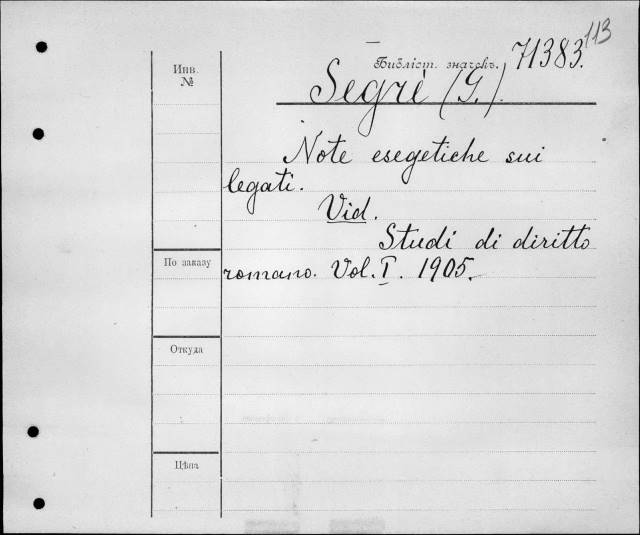 113
Библіот. значекъ. 71383.
Инв. №
Segrè (G.).
Note esegetiche sui
legati.
Vid.
Studi di diritto
По заказу
romano. Vol. I. 1905.
Откуда
Цѣна